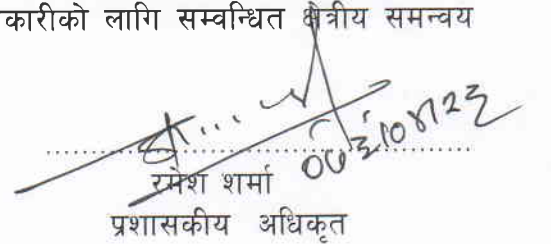 कारीको लागि सम्वन्धित क्षेत्रीय समन्वय
रमेश शर्मा
प्रशासकीय अधिकृत